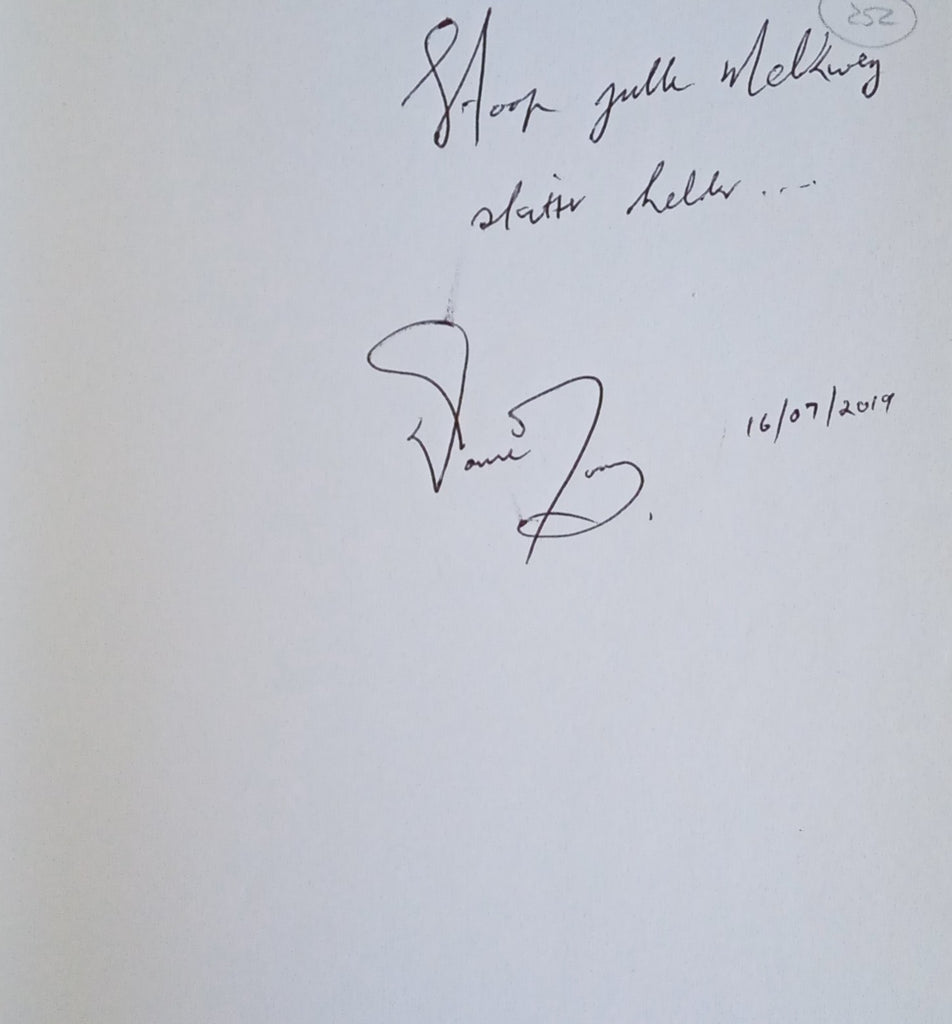 252
Hoop julle Melkweg
skitter helder ....
16/07/2019